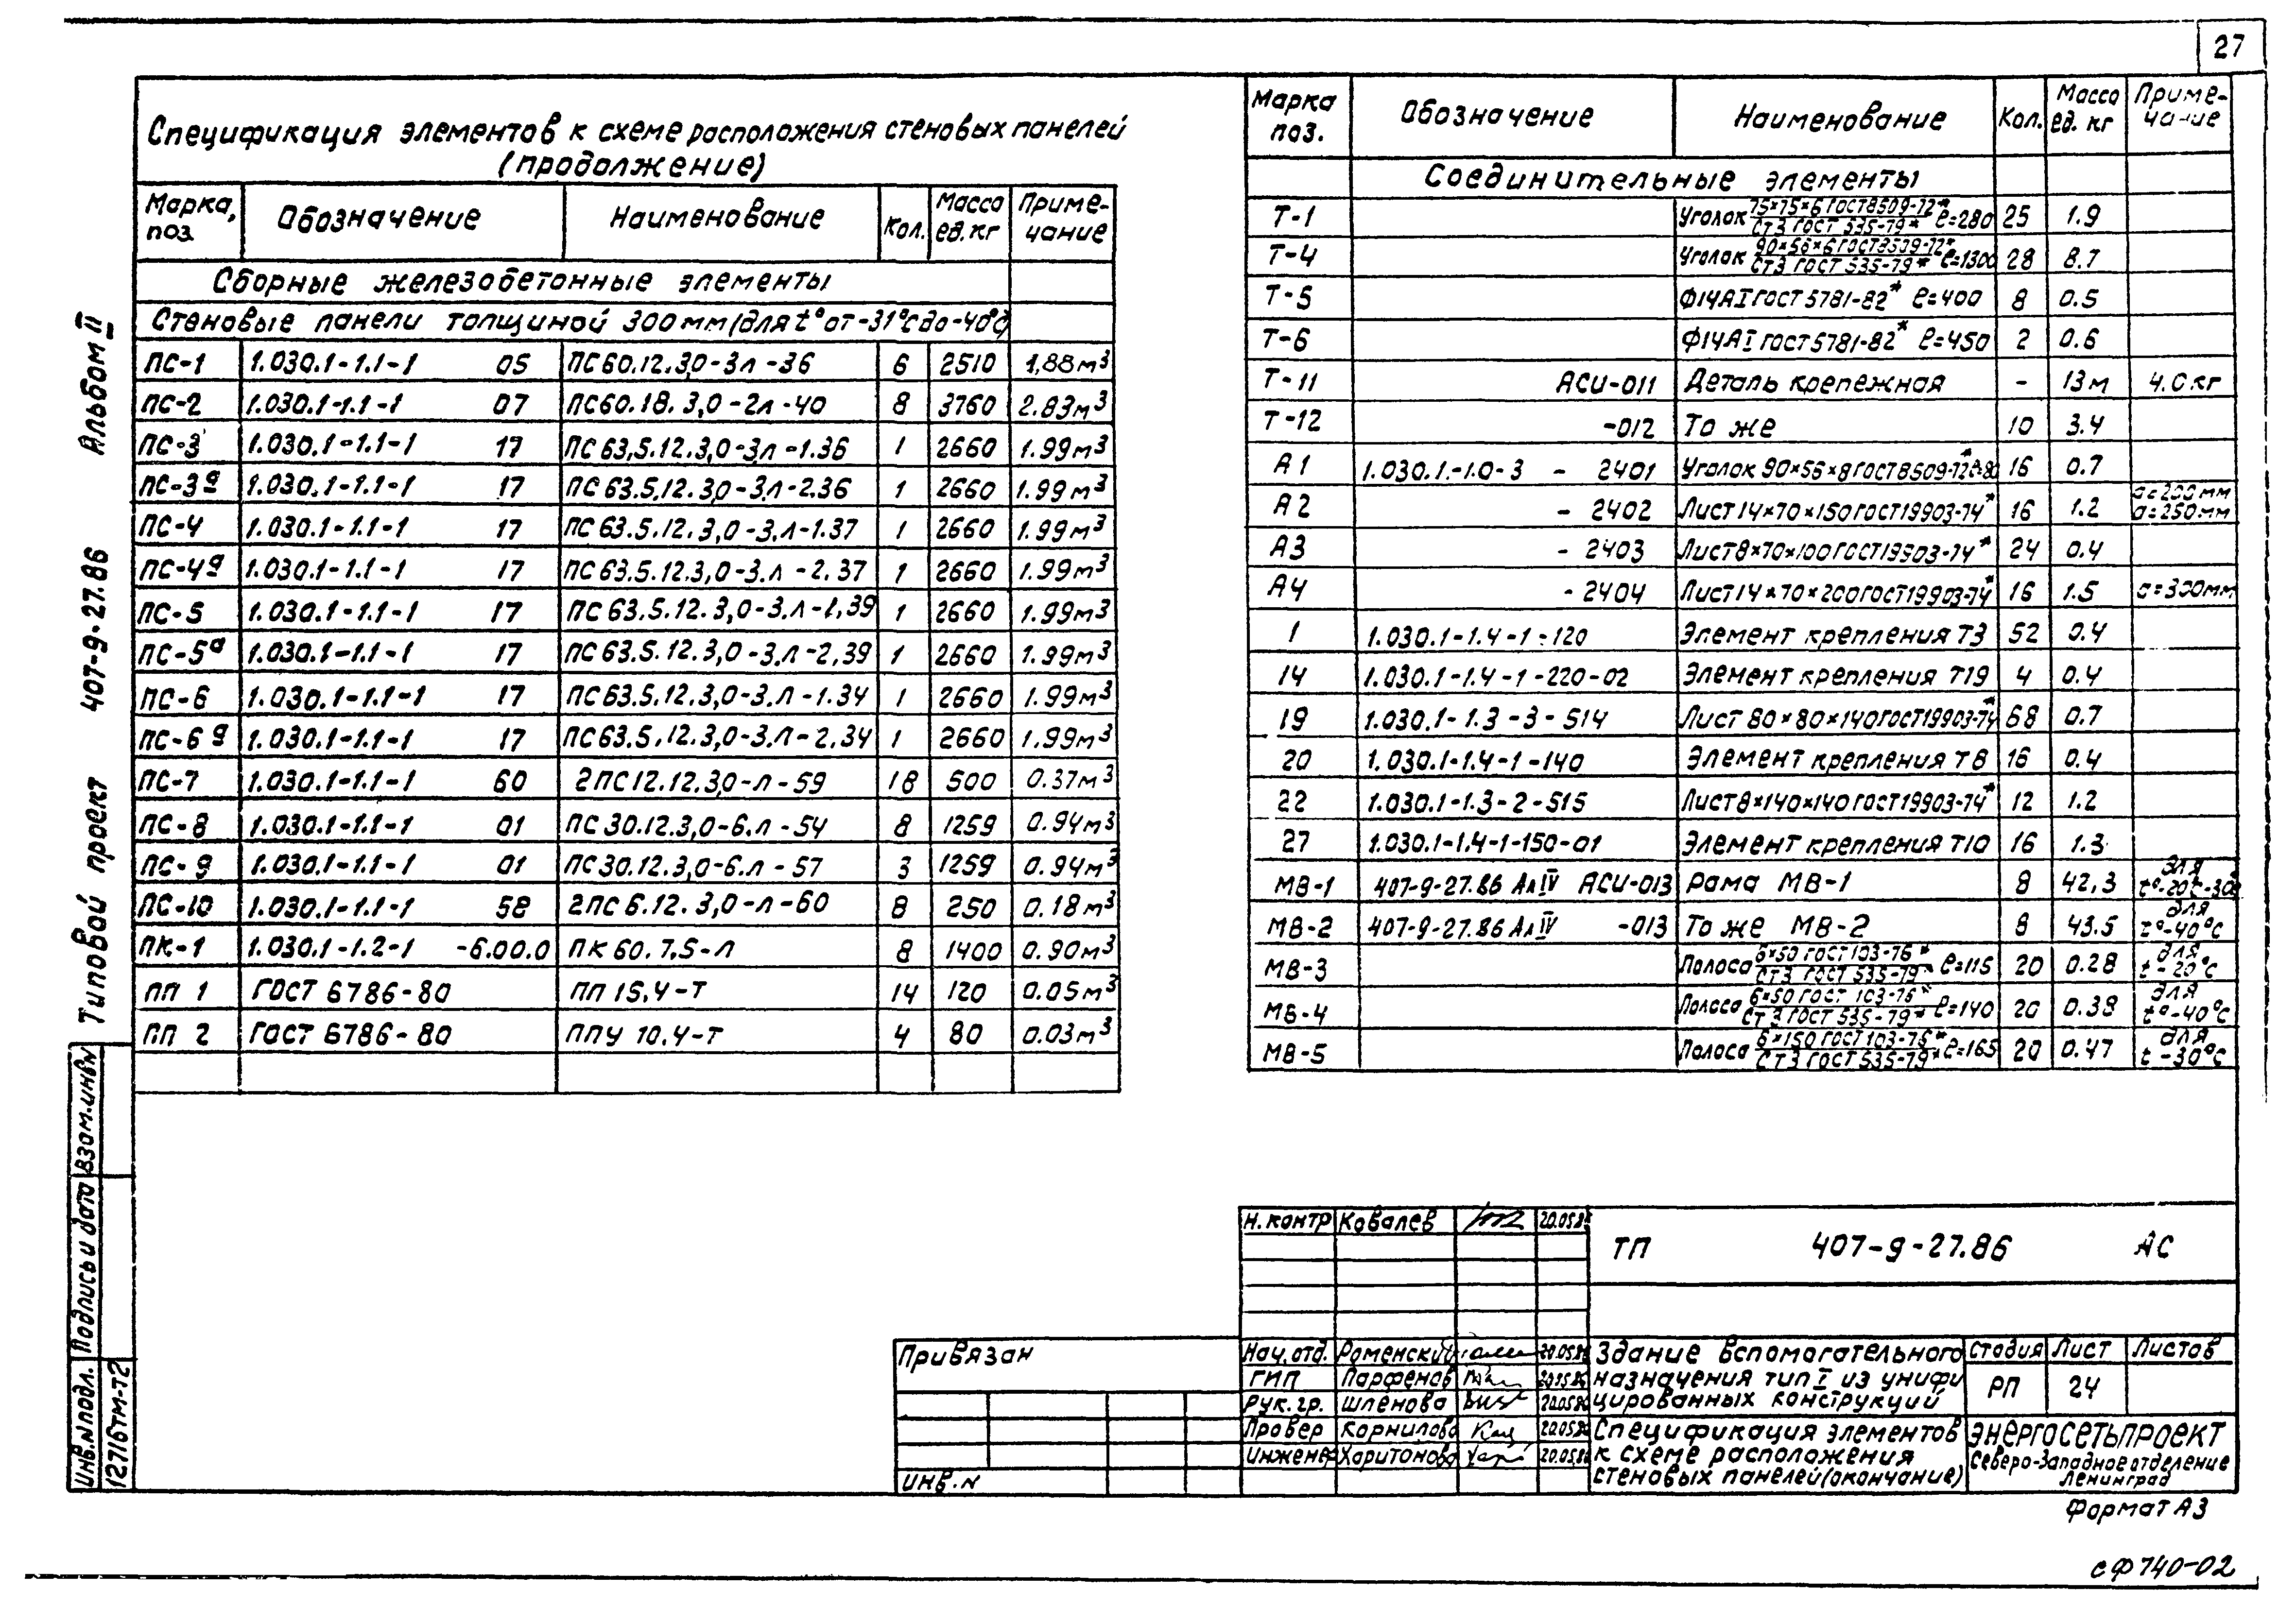 27
Альбом II
Типовой проект 407-9-27.86
Спецификация элементов к схеме расположения стеновых панелей
(продолжение)
Марка, поз. Обозначение Наименование Кол. Масса ед. кг Примечание
Сборные железобетонные элементы
Стеновые панели толщиной 300мм (для t° от -31°С до -40°С)
ПС-1 1.030.1-1.1-1 05 ПС60.12.3,0-3л-36 6 2510 1,88м³
ПС-2 1.030.1-1.1-1 07 ПС60.18.3,0-2л-40 8 3760 2.83м³
ПС-3 1.030.1-1.1-1 17 ПС63,5.12.3,0-3л-1.36 1 2660 1.99м³
ПС-3а 1.030.1-1.1-1 17 ПС63.5.12.3,0-3.л-2.36 1 2660 1.99м³
ПС-4 1.030.1-1.1-1 17 ПС63.5.12.3,0-3.л-1.37 1 2660 1.99м³
ПС-4а 1.030.1-1.1-1 17 ПС63.5.12.3,0-3.л-2.37 1 2660 1.99м³
ПС-5 1.030.1-1.1-1 17 ПС63.5.12.3,0-3.л-1.39 1 2660 1.99м³
ПС-5а 1.030.1-1.1-1 17 ПС63.5.12.3,0-3.л-2.39 1 2660 1.99м³
ПС-6 1.030.1-1.1-1 17 ПС63.5.12.3,0-3.л-1.34 1 2660 1.99м³
ПС-6а 1.030.1-1.1-1 17 ПС63.5.12.3,0-3.л-2.34 1 2660 1.99м³
ПС-7 1.030.1-1.1-1 60 2ПС12.12.3,0-л-59 18 500 0.37м³
ПС-8 1.030.1-1.1-1 01 ПС30.12.3,0-6.л-54 8 1259 0.94м³
ПС-9 1.030.1-1.1-1 01 ПС30.12.3,0-6.л-57 3 1259 0.94м³
ПС-10 1.030.1-1.1-1 58 2ПС6.12.3,0-л-60 8 250 0.18м³
ПК-1 1.030.1-1.2-1 -6.00.0 ПК60.7,5-Л 8 1400 0.90м³
ПП 1 ГОСТ 6786-80 ПП 15.4-Т 14 120 0.05м³
ПП 2 ГОСТ 6786-80 ППУ 10.4-Т 4 80 0.03м³
Марка поз. Обозначение Наименование Кол. Масса ед. кг Примечание
Соединительные элементы
Т-1 Уголок 75×75×6 ГОСТ8509-72* / Ст3 ГОСТ 535-79* ℓ=280 25 1.9
Т-4 Уголок 90×56×6 ГОСТ8509-72* / Ст3 ГОСТ 535-79* ℓ=1300 28 8.7
Т-5 Ф14АI ГОСТ 5781-82* ℓ=400 8 0.5
Т-6 Ф14АI ГОСТ5781-82* ℓ=450 2 0.6
Т-11 АСИ-011 Деталь крепежная - 13м 4.0кг
Т-12 -012 То же 10 3.4
А1 1.030.1-1.0-3 - 2401 Уголок 90×56×8 ГОСТ8509-72* ℓ=80 16 0.7
А2 - 2402 Лист 14×70×150 ГОСТ19903-74* 16 1.2 а=200мм а=250мм
А3 - 2403 Лист 8×70×100 ГОСТ19903-74* 24 0.4
А4 - 2404 Лист 14×70×200 ГОСТ19903-74* 16 1.5 а=300мм
1 1.030.1-1.4-1-120 Элемент крепления Т3 52 0.4
14 1.030.1-1.4-1-220-02 Элемент крепления Т19 4 0.4
19 1.030.1-1.3-3-514 Лист 80×80×140 ГОСТ19903-74* 68 0.7
20 1.030.1-1.4-1-140 Элемент крепления Т8 16 0.4
22 1.030.1-1.3-2-515 Лист 8×140×140 ГОСТ19903-74* 12 1.2
27 1.030.1-1.4-1-150-01 Элемент крепления Т10 16 1.3
МВ-1 407-9-27.86 Ал IV АСИ-013 Рама МВ-1 8 42,3 для t°-20°t-30°
МВ-2 407-9-27.86 Ал IV -013 То же МВ-2 8 43.5 для t°-40°С
МВ-3 Полоса 6×50 ГОСТ 103-76* / Ст3 ГОСТ 535-79* ℓ=115 20 0.28 для t-20°С
МВ-4 Полоса 6×50 ГОСТ 103-76* / Ст3 ГОСТ 535-79* ℓ=140 20 0.38 для t°-40°С
МВ-5 Полоса 6×150 ГОСТ 103-76* / Ст3 ГОСТ 535-79* ℓ=165 20 0.47 для t-30°С
Инв.N подл. Подпись и дата Взам.инв.N
12716тм-т2
Привязан
Инв.N
Н.контр Ковалев 20.05.86
Нач.отд. Роменский 20.05.86
ГИП Парфенов 20.05.86
Рук.гр. Шленова 20.05.86
Провер Корнилова 20.05.86
Инженер Харитонова 20.05.86
ТП 407-9-27.86 АС
Здание вспомогательного
назначения тип I из унифи
цированных конструкций
Стадия Лист Листов
РП 24
Спецификация элементов
к схеме расположения
стеновых панелей (окончание)
ЭНЕРГОСЕТЬПРОЕКТ
Северо-Западное отделение
Ленинград
Формат А3
сф 740-02